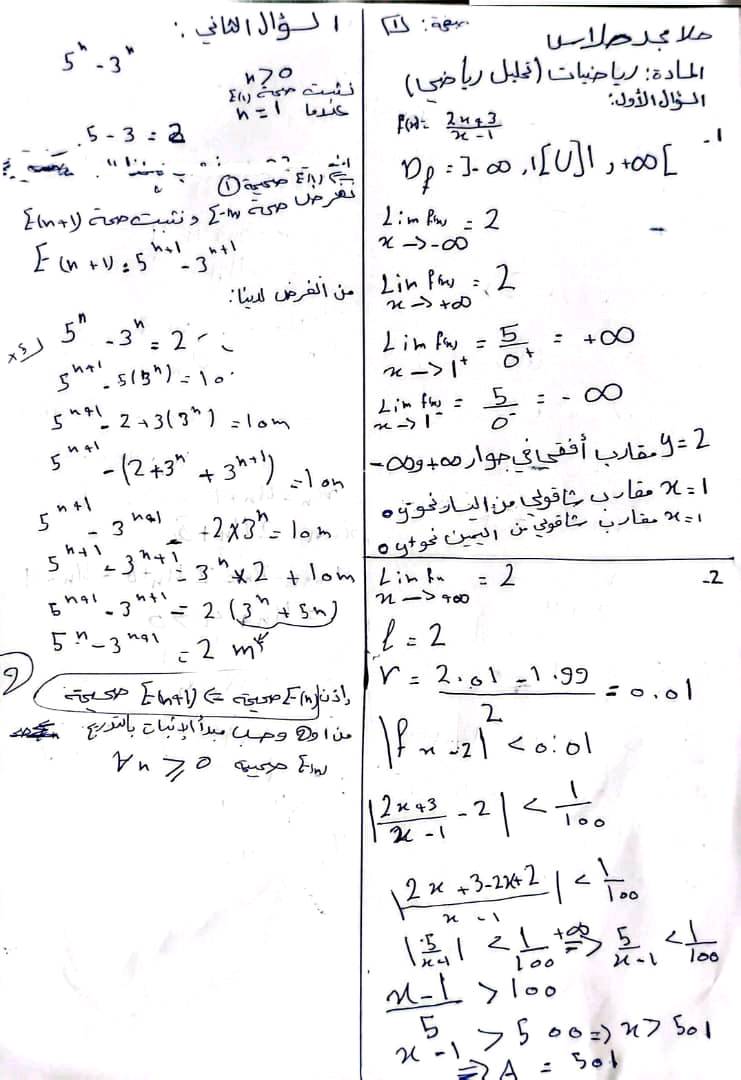 صفحة: 1
المادة: رياضيات (تحليل رياضي)
السؤال الأول:
1- f(x) = \frac{2x+3}{x-1}
D_f = ]-∞, 1[ U ]1, +∞[
Lim f(x) = 2
x → -∞
Lim f(x) = 2
x → +∞
Lim f(x) = \frac{5}{0^+} = +∞
x → 1^+
Lim f(x) = \frac{5}{0^-} = -∞
x → 1^-
y = 2 مقارب أفقي في جوار +∞ و -∞
x = 1 مقارب شاقولي من اليسار نحو
x = 1 مقارب شاقولي من اليمين نحو
2- Lim = 2
x → +∞
l = 2
r = \frac{2.01 - 1.99}{2} = 0.01
|f x - 2| < 0.01
|\frac{2x+3}{x-1} - 2| < \frac{1}{100}
|\frac{2x+3-2x+2}{x-1}| < \frac{1}{100}
|\frac{5}{x-1}| < \frac{1}{100} \overset{+∞}{⇒} \frac{5}{x-1} < \frac{1}{100}
\frac{x-1}{5} > 100
x - 1 > 500 ⇒ x > 501
⇒ A = 501
السؤال الثاني:
5^n - 3^n
n > 0
نثبت صحة E(1)
عندما n = 1
5 - 3 = 2
E(1) صحيحة ①
نفرض صحة E(n) و نثبت صحة E(n+1)
E(n+1) : 5^{n+1} - 3^{n+1}
من الفرض لدينا:
5^n - 3^n = 2
5^{n+1} - 5(3^n) = 10
5^{n+1} - 2+3(3^n) = 10m
5^{n+1} - (2+3^n + 3^{n+1}) = 10m
5^{n+1} - 3^{n+1} - +2×3^n = 10m
5^{n+1} - 3^{n+1} = 3^n × 2 + 10m
5^{n+1} - 3^{n+1} = 2(3^n + 5n)
5^n - 3^{n+1} = 2 m^*
إذن E(n) صحيحة ⇐ E(n+1) صحيحة ②
من 1 و 2 وحسب مبدأ الإثبات بالتدريج
E(n) صحيحة ∀n ⩾ 0